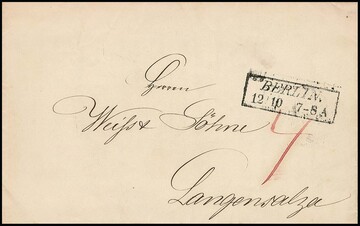 Herrn
BERLIN.
12 10 7-8 A
Weiss & Söhne
4
Langensalza